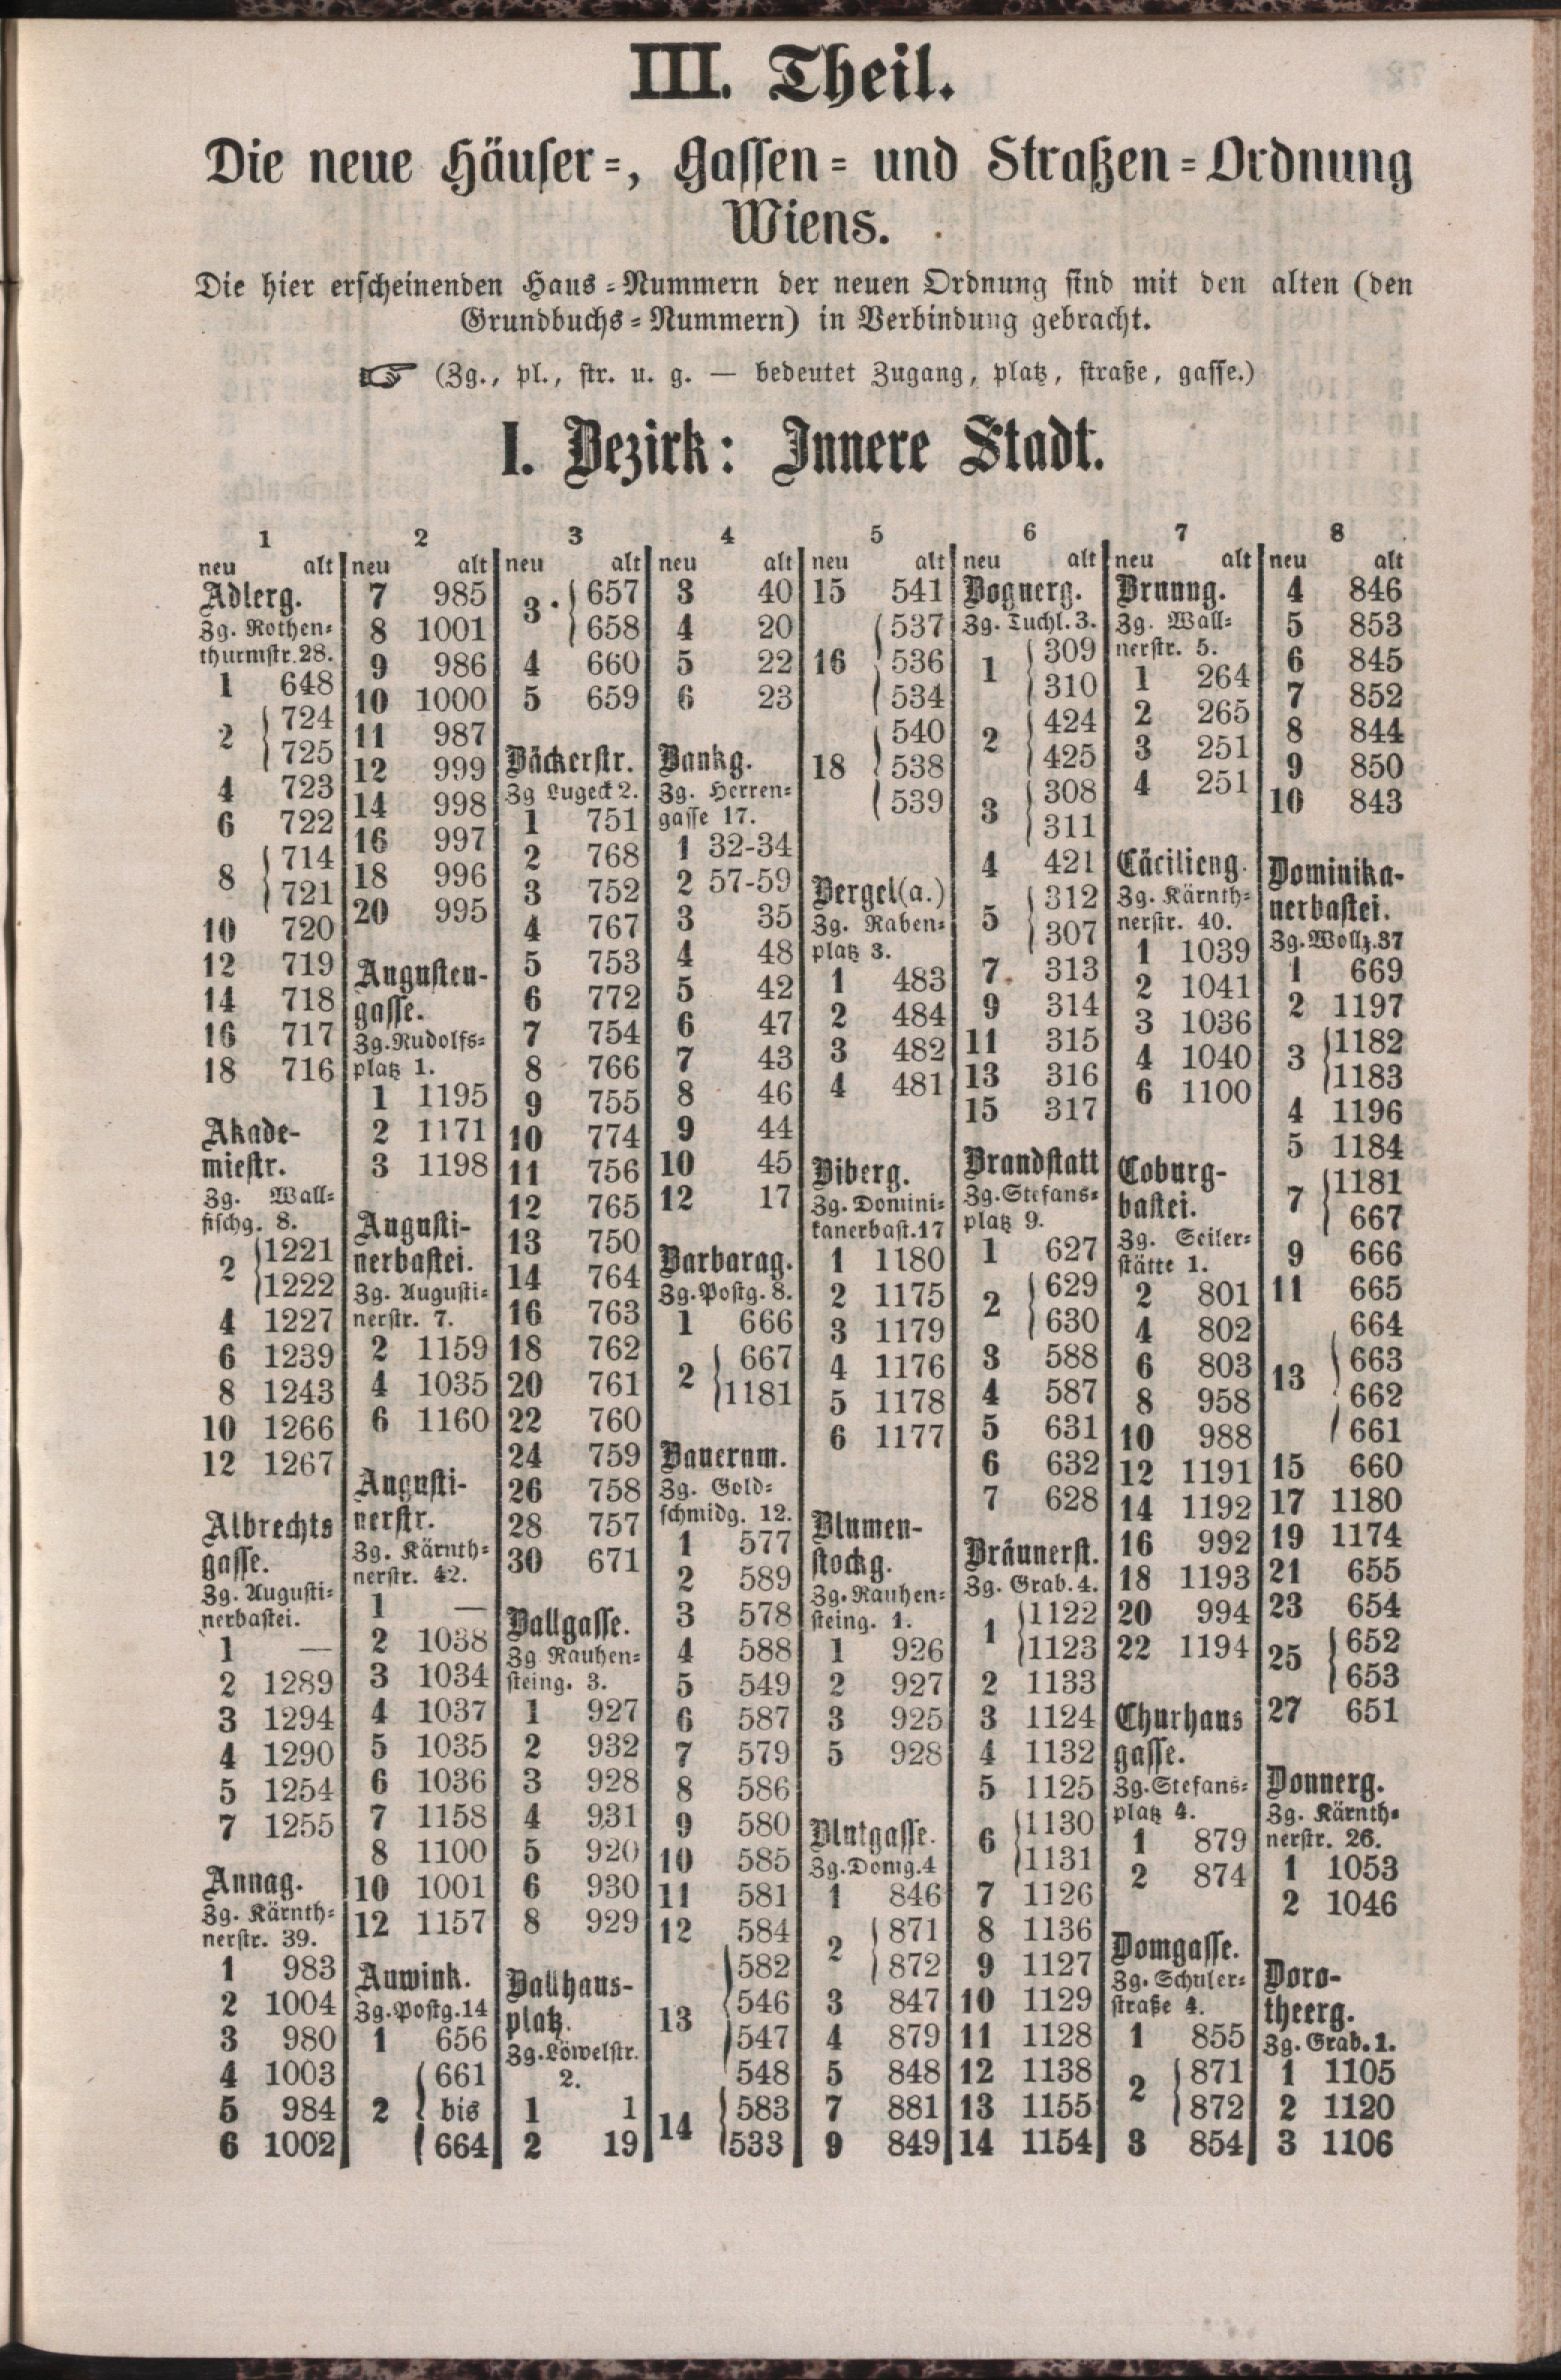 III. Theil.
Die neue Häuser-, Gassen- und Straßen-Ordnung
Wiens.
Die hier erscheinenden Haus-Nummern der neuen Ordnung sind mit den alten (den
Grundbuchs-Nummern) in Verbindung gebracht.
☞ (Zg., pl., str. u. g. — bedeutet Zugang, platz, straße, gasse.)
I. Bezirk: Innere Stadt.
1
neu alt
Adlerg.
Zg. Rothen-
thurmstr. 28.
1 648
2 { 724
725
4 723
6 722
8 { 714
721
10 720
12 719
14 718
16 717
18 716
Akade-
miestr.
Zg. Wall-
fischg. 8.
2 { 1221
1222
4 1227
6 1239
8 1243
10 1266
12 1267
Albrechts
gasse.
Zg. Augusti-
nerbastei.
1 —
2 1289
3 1294
4 1290
5 1254
7 1255
Annag.
Zg. Kärnth-
nerstr. 39.
1 983
2 1004
3 980
4 1003
5 984
6 1002
2
neu alt
7 985
8 1001
9 986
10 1000
11 987
12 999
14 998
16 997
18 996
20 995
Augusten-
gasse.
Zg. Rudolfs-
platz 1.
1 1195
2 1171
3 1198
Augusti-
nerbastei.
Zg. Augusti-
nerstr. 7.
2 1159
4 1035
6 1160
Augusti-
nerstr.
Zg. Kärnth-
nerstr. 42.
1 —
2 1038
3 1034
4 1037
5 1035
6 1036
7 1158
8 1100
10 1001
12 1157
Auwink.
Zg. Postg. 14
1 656
2 { 661
bis
664
3
neu alt
3. { 657
658
4 660
5 659
Bäckerstr.
Zg Lugeck 2.
1 751
2 768
3 752
4 767
5 753
6 772
7 754
8 766
9 755
10 774
11 756
12 765
13 750
14 764
16 763
18 762
20 761
22 760
24 759
26 758
28 757
30 671
Ballgasse.
Zg Rauhen-
steing. 3.
1 927
2 932
3 928
4 931
5 920
6 930
8 929
Ballhaus-
platz.
Zg. Löwelstr.
2.
1 1
2 19
4
neu alt
3 40
4 20
5 22
6 23
Bankg.
Zg. Herren-
gasse 17.
1 32-34
2 57-59
3 35
4 48
5 42
6 47
7 43
8 46
9 44
10 45
12 17
Barbarag.
Zg. Postg. 8.
1 666
2 { 667
1181
Bauernm.
Zg. Gold-
schmidg. 12.
1 577
2 589
3 578
4 588
5 549
6 587
7 579
8 586
9 580
10 585
11 581
12 584
13 { 582
546
547
548
14 { 583
533
5
neu alt
15 541
16 { 537
536
534
18 { 540
538
539
Bergel (a.)
Zg. Raben-
platz 3.
1 483
2 484
3 482
4 481
Biberg.
Zg. Domini-
kanerbast. 17
1 1180
2 1175
3 1179
4 1176
5 1178
6 1177
Blumen-
stockg.
Zg. Rauhen-
steing. 1.
1 926
2 927
3 925
5 928
Blutgasse.
Zg. Domg. 4
1 846
2 { 871
872
3 847
4 879
5 848
7 881
9 849
6
neu alt
Bognerg.
Zg. Tuchl. 3.
1 { 309
310
2 { 424
425
3 { 308
311
4 421
5 { 312
307
7. 313
9 314
11 315
13 316
15 317
Brandstatt
Zg. Stefans-
platz 9.
1 627
2 { 629
630
3 588
4 587
5 631
6 632
7 628
Bräunerst.
Zg. Grab. 4.
1 { 1122
1123
2 1133
3 1124
4 1132
5 1125
6 { 1130
1131
7 1126
8 1136
9 1127
10 1129
11 1128
12 1138
13 1155
14 1154
7
neu alt
Brunng.
Zg. Wall-
nerstr. 5.
1 264
2 265
3 251
4 251
Cäcilieng.
Zg. Kärnth-
nerstr. 40.
1 1039
2 1041
3 1036
4 1040
6 1100
Coburg-
bastei.
Zg. Seiler-
stätte 1.
2 801
4 802
6 803
8 958
10 988
12 1191
14 1192
16 992
18 1193
20 994
22 1194
Churhaus
gasse.
Zg. Stefans-
platz 4.
1 879
2 874
Domgasse.
Zg. Schuler-
straße 4.
1 855
2 { 871
872
3 854
8
neu alt
4 846
5 853
6 845
7 852
8 844
9 850
10 843
Dominika-
nerbastei.
Zg. Wollz. 37
1 669
2 1197
3 { 1182
1183
4 1196
5 1184
7 { 1181
667
9 666
11 665
13 { 664
663
662
661
15 660
17 1180
19 1174
21 655
23 654
25 { 652
653
27 651
Donnerg.
Zg. Kärnth-
nerstr. 26.
1 1053
2 1046
Doro-
theerg.
Zg. Grab. 1.
1 1105
2 1120
3 1106